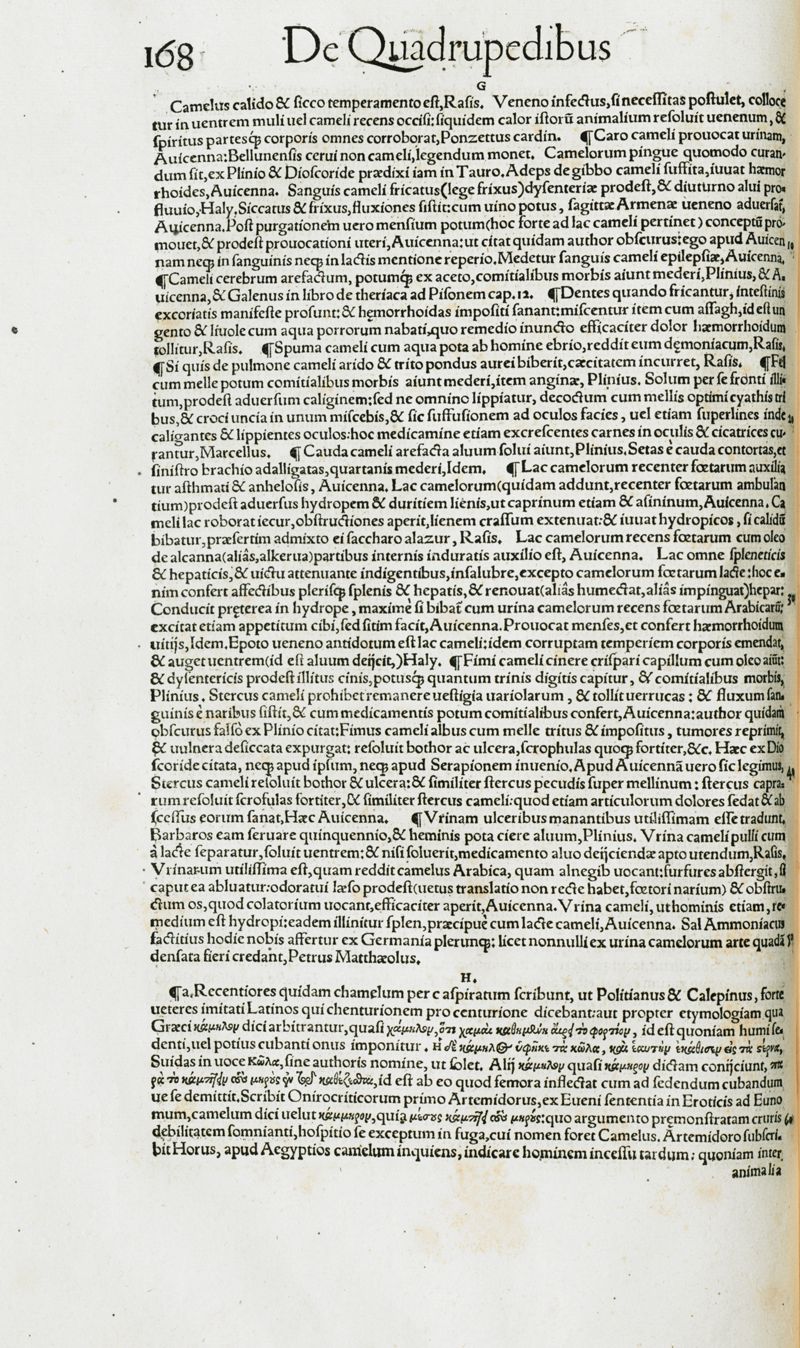 168 De Quadrupedibus
G
Camelus calido & sicco temperamento est, Rasis. Veneno infectus, si necessitas postulet, colloce
tur in uentrem muli uel cameli recens occisi: siquidem calor istorũ animalium resoluit uenenum, &
spiritus partesq́ꝫ corporis omnes corroborat, Ponzettus cardin. ¶ Caro cameli prouocat urinam,
Auicenna: Bellunensis cerui non cameli, legendum monet. Camelorum pingue quomodo curan-
dum sit, ex Plinio & Dioscoride prædixi iam in Tauro. Adeps de gibbo cameli suffita, iuuat hæmor
rhoides, Auicenna. Sanguis cameli fricatus (lege frixus) dysenteriæ prodest, & diuturno alui pro-
fluuio, Haly. Siccatus & frixus, fluxiones sistit: cum uino potus, sagittæ Armenæ ueneno aduersat̃,
Auicenna. Post purgationem uero mensium potum (hoc forte ad lac cameli pertinet) conceptũ pro-
mouet, & prodest prouocationi uteri, Auicenna: ut citat quidam author obscurus: ego apud Auicen
nam neqꝫ in sanguinis neqꝫ in lactis mentione reperio. Medetur sanguis cameli epilepsiæ, Auicenna.
¶ Cameli cerebrum arefactum, potumq́ꝫ ex aceto, comitialibus morbis aiunt mederi, Plinius, & A.
uicenna, & Galenus in libro de theriaca ad Pisonem cap. 12. ¶ Dentes quando fricantur, intestinis
excoriatis manifeste prosunt: & hęmorrhoidas impositi sanant: miscentur item cum assagh, id est un
gento & liuole cum aqua porrorum nabati, quo remedio inuncto efficaciter dolor hæmorrhoidum
tollitur, Rasis. ¶ Spuma cameli cum aqua pota ab homine ebrio, reddit eum dęmoniacum, Rasis.
¶ Si quis de pulmone cameli arido & trito pondus aurei biberit, cæcitatem incurret, Rasis. ¶ Fel
cum melle potum comitialibus morbis aiunt mederi, item anginæ, Plinius. Solum per se fronti illi-
tum, prodest aduersum caliginem: sed ne omnino lippiatur, decoctum cum mellis optimi cyathis tri
bus, & croci uncia in unum miscebis, & sic suffusionem ad oculos facies, uel etiam superlines inde
caligantes & lippientes oculos: hoc medicamine etiam excrescentes carnes in oculis & cicatrices cu-
rantur, Marcellus. ¶ Cauda cameli arefacta aluum solui aiunt, Plinius. Setas è cauda contortas, et
sinistro brachio adalligatas, quartanis mederi, Idem. ¶ Lac camelorum recenter fœtarum auxilia
tur asthmati & anhelosis, Auicenna. Lac camelorum (quidam addunt, recenter fœtarum ambulan
tium) prodest aduersus hydropem & duritiem lienis, ut caprinum etiam & asininum, Auicenna. Ca
meli lac roborat iecur, obstructiones aperit, lienem crassum extenuat: & iuuat hydropicos, si calidũ
bibatur, præsertim admixto ei saccharo alazur, Rasis. Lac camelorum recens fœtarum cum oleo
de alcanna (aliâs, alkerua) partibus internis induratis auxilio est, Auicenna. Lac omne spleneticis
& hepaticis, & uictu attenuante indigentibus, insalubre, excepto camelorum fœtarum lacte: hoc e-
nim confert affectibus plerisq́ꝫ splenis & hepatis, & renouat (aliâs humectat, aliâs impinguat) hepar:
Conducit pręterea in hydrope, maximè si bibat̃ cum urina camelorum recens fœtarum Arabicarũ:
excitat etiam appetitum cibi, sed sitim facit, Auicenna. Prouocat menses, et confert hæmorrhoidum
uitijs, Idem. Epoto ueneno antidotum est lac cameli: idem corruptam temperiem corporis emendat,
& auget uentrem (id est aluum deijcit,) Haly. ¶ Fimi cameli cinere crispari capillum cum oleo aiũt:
& dysentericis prodest illitus cinis, potusq́ꝫ quantum trinis digitis capitur, & comitialibus morbis,
Plinius. Stercus cameli prohibet remanere uestigia uariolarum, & tollit uerrucas: & fluxum san-
guinis è naribus sistit, & cum medicamentis potum comitialibus confert, Auicenna: author quidam
obscurus falsò ex Plinio citat: Fimus cameli albus cum melle tritus & impositus, tumores reprimit,
& uulnera desiccata expurgat: resoluit bothor ac ulcera, scrophulas quoqꝫ fortiter, &c. Hæc ex Dio
scoride citata, neqꝫ apud ipsum, neqꝫ apud Serapionem inuenio. Apud Auicennã uero sic legimus,
Stercus cameli resoluit bothor & ulcera: & similiter stercus pecudis super mellinum: stercus capra-
rum resoluit scrofulas fortiter, & similiter stercus cameli: quod etiam articulorum dolores sedat & ab
scessus eorum sanat, Hæc Auicenna. ¶ Vrinam ulceribus manantibus utilissimam esse tradunt.
Barbaros eam seruare quinquennio, & heminis pota ciere aluum, Plinius. Vrina cameli pulli cum
à lacte separatur, soluit uentrem: & nisi soluerit, medicamento aluo deijciendæ apto utendum, Rasis.
Vrinarum utilissima est, quam reddit camelus Arabica, quam alnegib uocant: furfures abstergit, si
caput ea abluatur: odoratui læso prodest (uetus translatio non recte habet, fœtori narium) & obstru-
ctum os, quod colatorium uocant, efficaciter aperit, Auicenna. Vrina cameli, ut hominis etiam, re-
medium est hydropi: eadem illinitur splen, præcipuè cum lacte cameli, Auicenna. Sal Ammoniacus
factitius hodie nobis affertur ex Germania plerunqꝫ: licet nonnulli ex urina camelorum arte quadã
densata fieri credant, Petrus Matthæolus.
H.
¶ a. Recentiores quidam chamelum per c aspiratum scribunt, ut Politianus & Calepinus, forte
ueteres imitati Latinos qui chenturionem pro centurione dicebant: aut propter etymologiam qua
Græci κάμηλον dici arbitrantur, quasi χάμηλον, ὅτι χαμαὶ καθημένων αἴρει τὸ φορτίον, id est quoniam humi se-
denti, uel potius cubanti onus imponitur. Η δὲ κάμηλος ὑφῆκε τὰ κῶλα, καὶ ἑαυτὴν ἐκάθισεν εἰς τὰ στέρνα,
Suidas in uoce Κῶλα, sine authoris nomine, ut solet. Alij κάμηλον quasi κάμηρον dictam conijciunt, πα
ρὰ τὸ κάμπτειν τοὺς μηροὺς ἐν τῷ καθέζεσθαι, id est ab eo quod femora inflectat cum ad sedendum cubandum
ue se demittit. Scribit Onirocriticorum primo Artemidorus, ex Eueni sententia in Eroticis ad Euno
mum, camelum dici uelut κάμμηρον, quia μέσους κάμπτει τοὺς μηρούς: quo argumento pręmonstratam cruris
debilitatem somnianti, hospitio se exceptum in fuga, cui nomen foret Camelus. Artemidoro subscri-
bit Horus, apud Aegyptios camelum inquiens, indicare hominem incessu tardum: quoniam inter
animalia